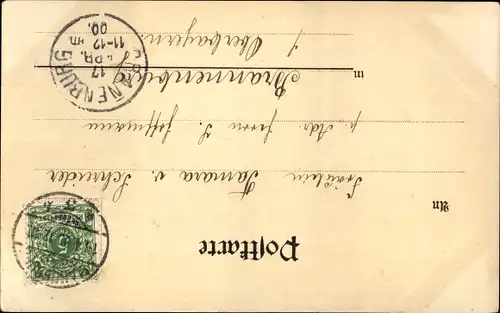 Postkarte
An
Fräulein Tamara v. Schneider
p. Adr. Herrn J. Hoffmann
in Brannenburg
/ Oberbayern.
BRANENBURG
17
APR.
11-12 m
00.
5